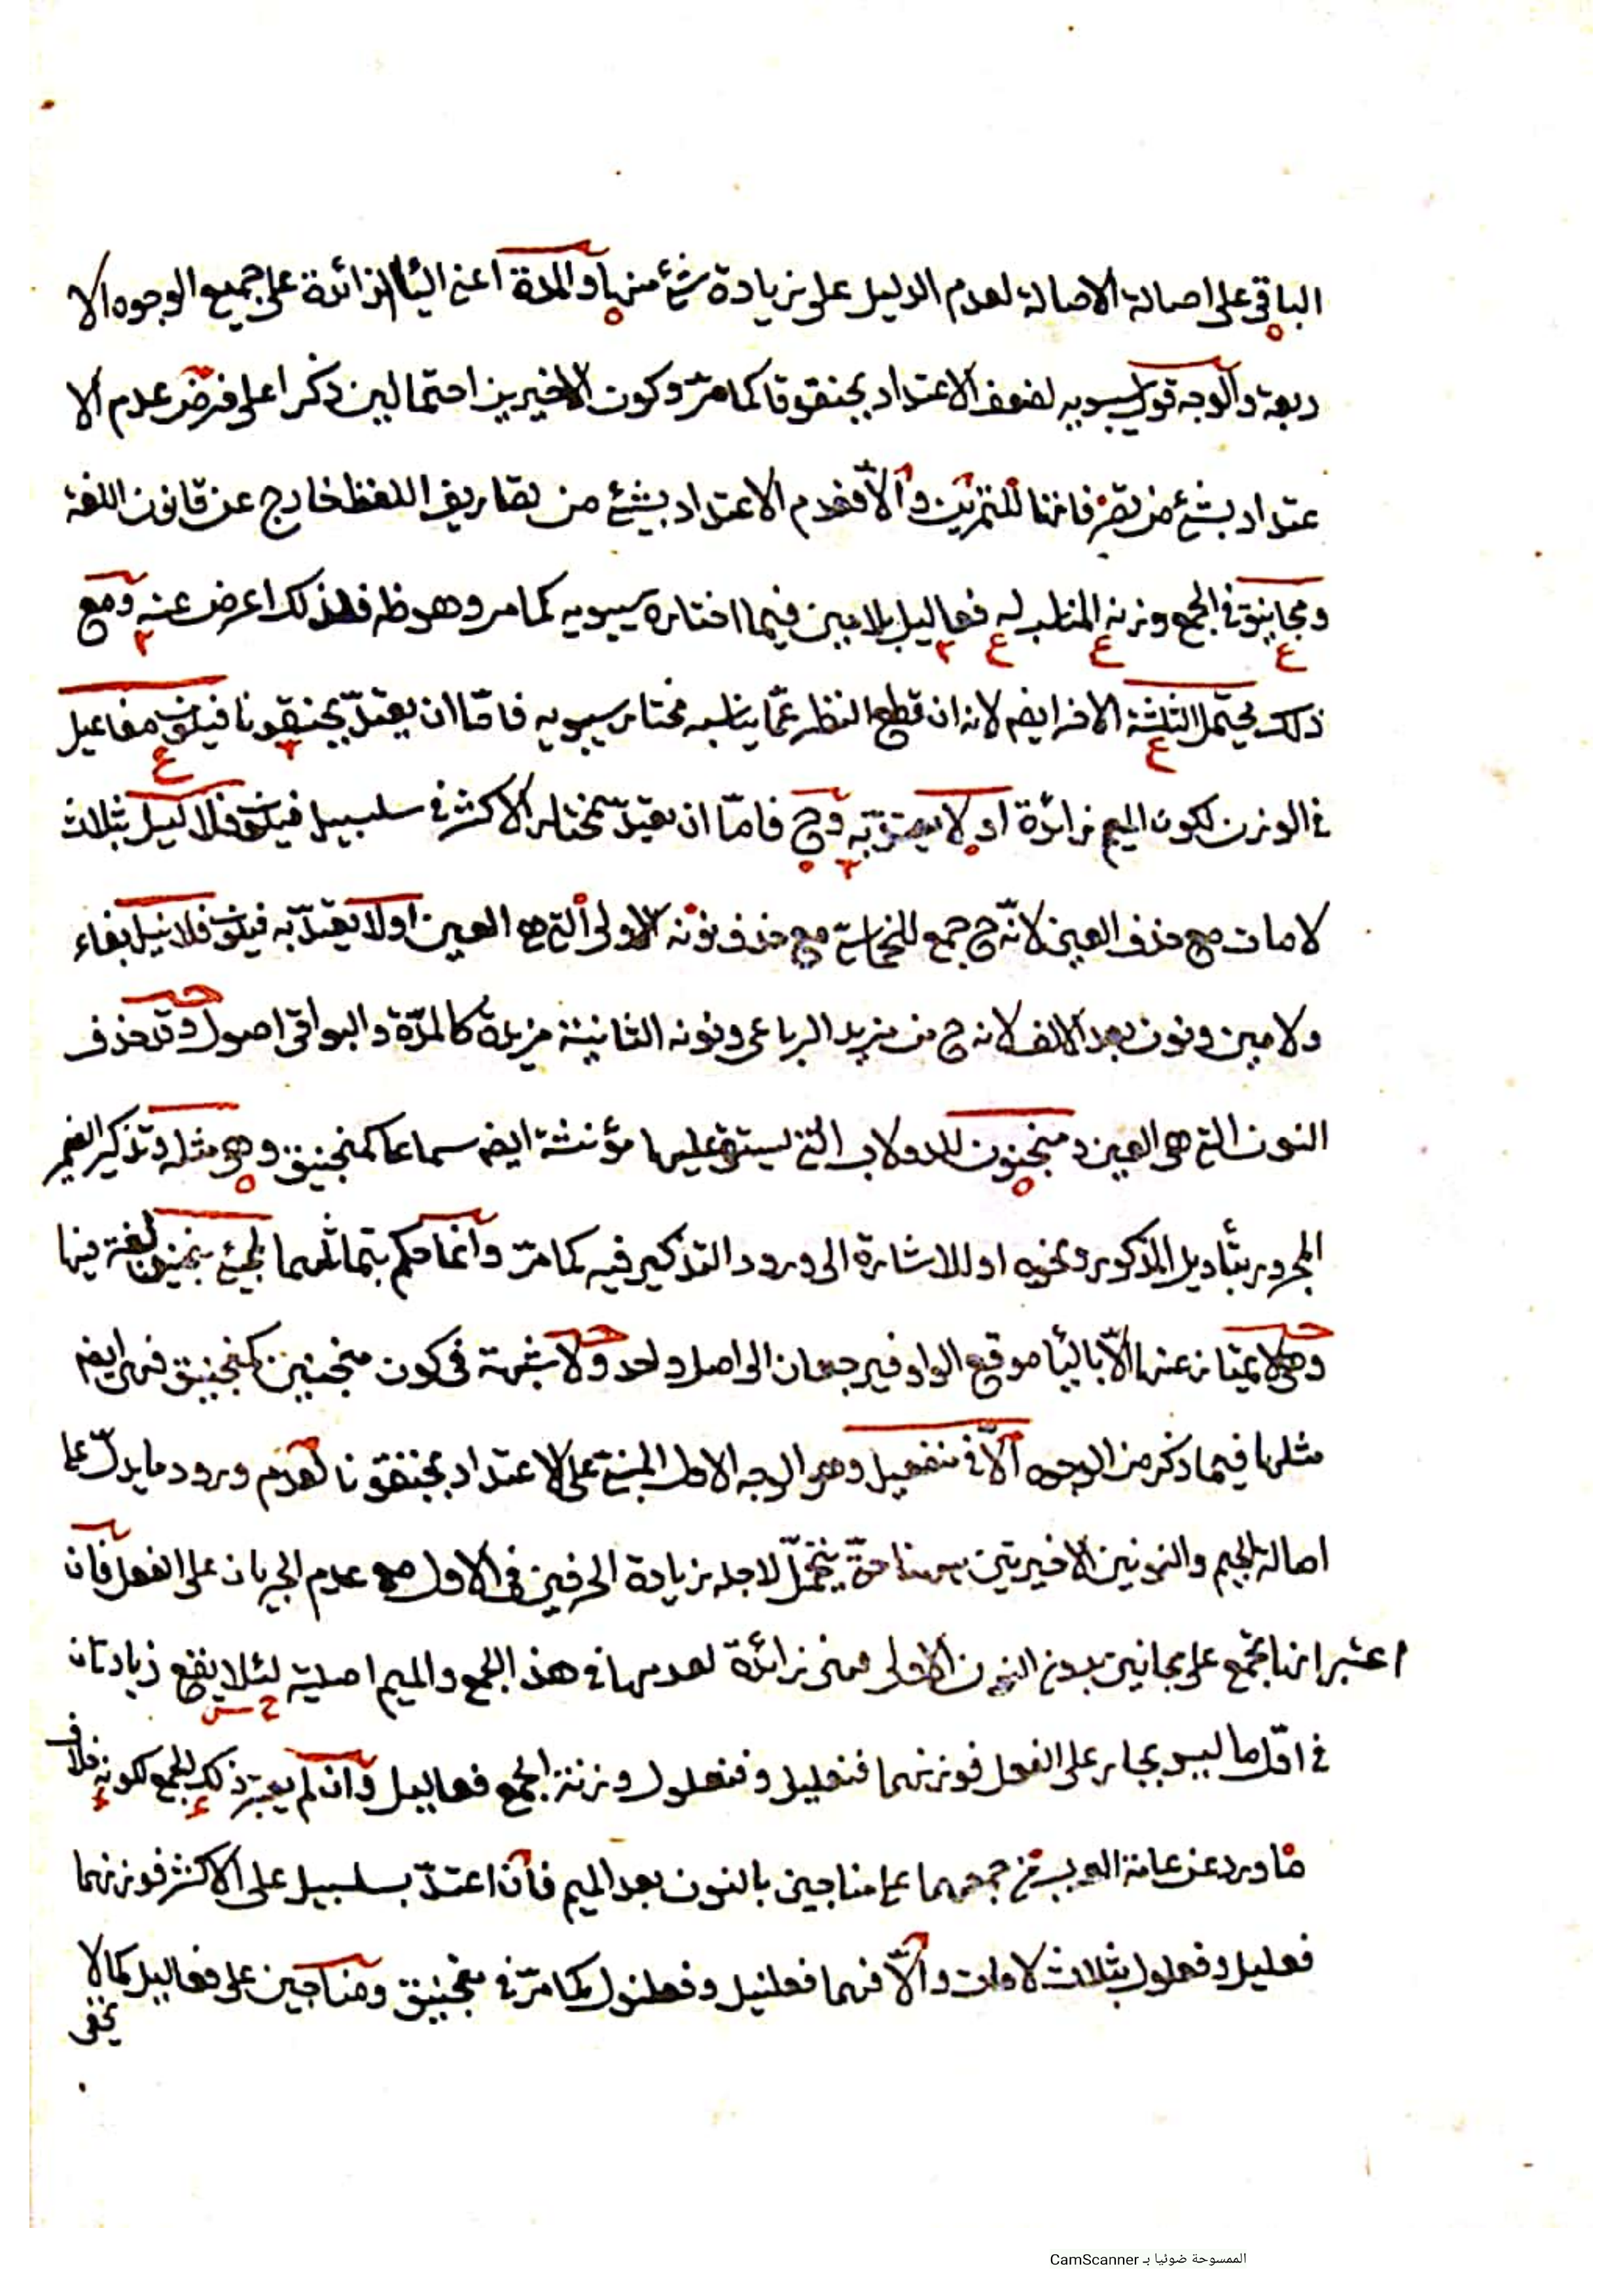 الباقي على اصالة الاصالة لعدم الدليل على زيادة شئ منها والمدة اعني الياء الزائدة على جميع الوجوه الا
ربعة والوجه قول سيبويه لضعف الاعتداد بجنقونا كما مرّ وكون الاخيرين احتمالين ذكرا على فرض عدم الا
عتداد بشئ من تصرفاتنا للتمرين والّا فعدم الاعتداد بشئ من تصاريف اللفظ خارج عن قانون اللغة
ومجانيق في الجمع وزنه المناسب له فعاليل بلامين فيما اختاره سيبويه كما مر وهو ظه فلذلك اعرض عنه ومع
ذلك يحتمل الثلثة الاخر ايضم لانه ان قطع النظر عمّا يناسبه مختار سيبويه فامّا ان يعتدّ بجنقونا فيكون مفاعيل
في الوزن لكون الميم زائدة او لا يعتدّ به وح فامّا ان يعتدّ بمختار الاكثر في سلسبيل فيكون فلاليل بثلاث
لامات مع حذف العين لانّه ح جمع للخماسي مع حذف نونه الاولى التي هو العين اولا يعتدّ به فيكون فلانيل بفاء
ولامين ونون بعد الالف لانه ح من مزيد الرباعى ونونه الثانية مزيدة كالمدّة والبواقى اصول وقد حذف
النون التي هي العين ومنجنون للدولاب التي يستقى عليها مؤنثة ايضم سماعا كمنجنيق وهي مثله وتذكير الضمير
المجرور بتأويل المذكور ونحوه او للاشارة الى ورود التذكير فيه كما مرّ وانما حكم بتماثلهما لمجئ منجنين لغة فيها
وهي لا يمتاز عنها الّا بالياء موقع الواو فيرجعان الى اصل واحد ولا شبهة في كون منجنين كمنجنيق فهى ايضم
مثلها فيما ذكر من الوجوه الّا في منفعيل وهو الوجه الاول المبنى على الاعتداد بجنقونا لعدم ورود ما يدلّ على
اصالة الجيم والنونين الاخيرتين ههنا حتّى يتحمّل لاجله زيادة الحرفين في الاول مع عدم الجريان على الفعل فان
اعتبر انها تجمع على مجانين بدون النون الاولى فهى زائدة لعدمها في هذ الجمع والميم اصلية لئلا يقع زيادتان
في اوّل ما ليس بجار على الفعل فوزنهما فنعليل وفنعلول وزنة الجمع فعاليل وان لم يعتبر ذلك الجمع لكونه خلاف
ما ورد عن عامة العرب في جمعهما على مناجين بالنون بعد الميم فان اعتدّ بسلسبيل على الاكثر فوزنهما
فعليل وفعلول بثلاث لامات والّا فهما فعلنيل وفعلنول كما مرّ في منجنيق ومناجين على فعاليل كما لا
يخفى
الممسوحة ضوئيا بـ CamScanner